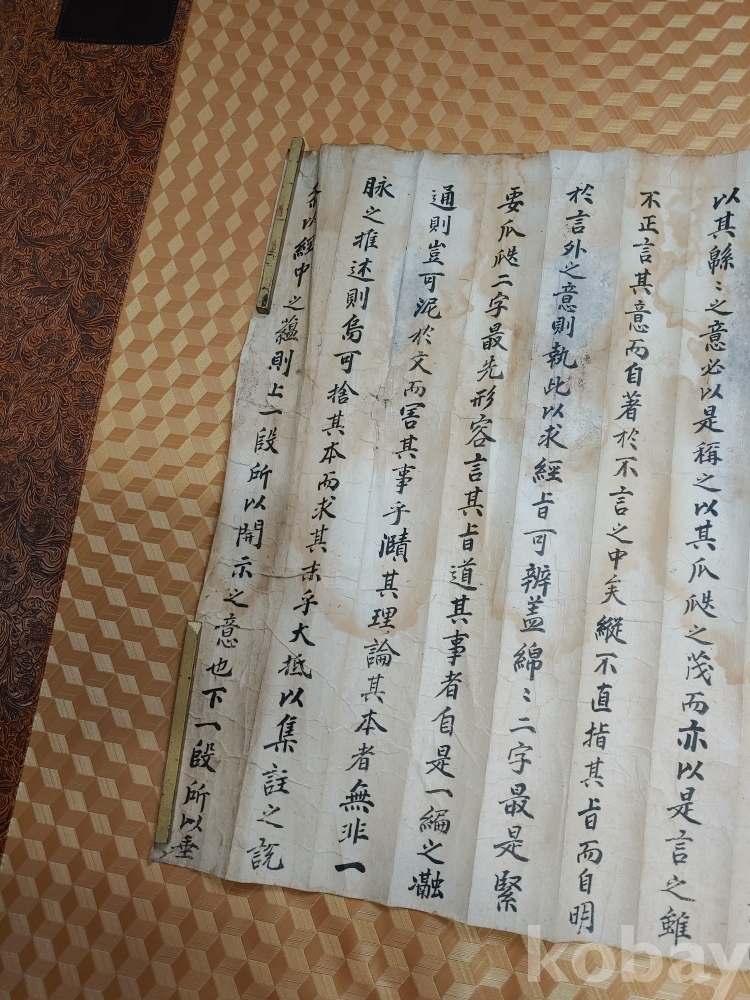 以其緜〻之意必以是稱之以其瓜瓞之茂而亦以是言之雖
不正言其意而自著於不言之中矣縱不直指其旨而自明
於言外之意則執此以求經旨可辨盖綿〻二字最是緊
要瓜瓞二字最先形容言其旨道其事者自是一編之瀜
通則豈可泥於文而害其事乎賾其理論其本者無非一
脉之推述則烏可捨其本而求其末乎大抵以集註之說
以經中之蘊則上一段所以開示之意也下一段所以垂
kobay